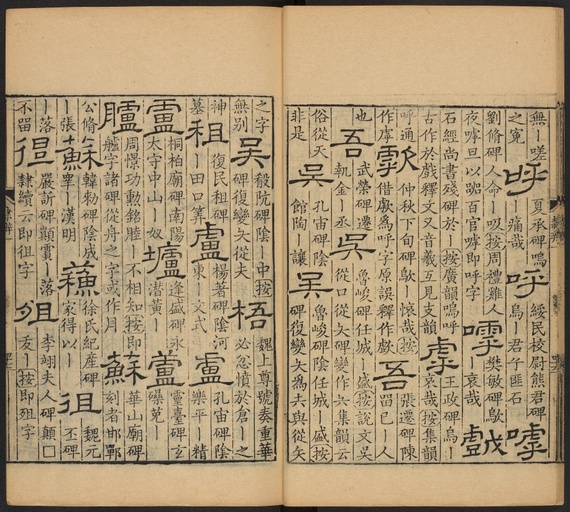 無丨嗟
之寃
呼
夏承碑嗚
丨痛哉
呼
綏民校尉熊君碑
烏丨君子匪石
嘑
劉脩碑人命丨吸按周禮雞人
夜嘑旦以嘂百官嘑即呼字
嘑
樊敏碑歍
丨哀哉
戯
石經尚書殘碑於丨按廣韻嗚呼
古作於戲釋文又音羲互見支韻
虖
王政碑烏丨
哀哉按集韻
呼通
作虖
歑
仲秋下旬碑歍丨哀哉按
借歑為呼字原誤釋作歔
吾
張遷碑陳
留己丨人
也
吾
武榮碑遷
執金丨丞
吳
魯峻碑任城丨盛按說文吳
從口從夨碑變作六集韻云
俗從天
非是
吳
孔宙碑陰
館陶丨讓
吳
魯峻碑陰任城丨盛按
碑復變夨為夫與從矢
之字
無別
吳
殽阬碑陰丨中按
碑復變夨從夫
梧
魏上尊號奏重華
必忿憤於倉丨之
神
墓
租
復民租碑
丨田口筭
盧
楊著碑陰河
東丨文式
盧
孔宙碑陰
樂平丨精
盧
桐柏廟碑南陽
太守中山丨奴
壚
逢盛碑永
黃丨
蘆
靈臺碑玄
丨
臚
周憬功勳銘睦丨不相知按即
艫字諸碑從舟之字或作月
蘇
華山廟碑
刻者邯鄲
公脩
丨張
蘇
韓勑碑陰成
睪丨漢明
蘓
徐氏紀產碑
家得以丨
徂
魏元
丕碑
丨落
不留
徂
嚴訢碑顛賈丨落
隸續云即徂字
徂
李翊夫人碑顛囗
友丨按即殂字